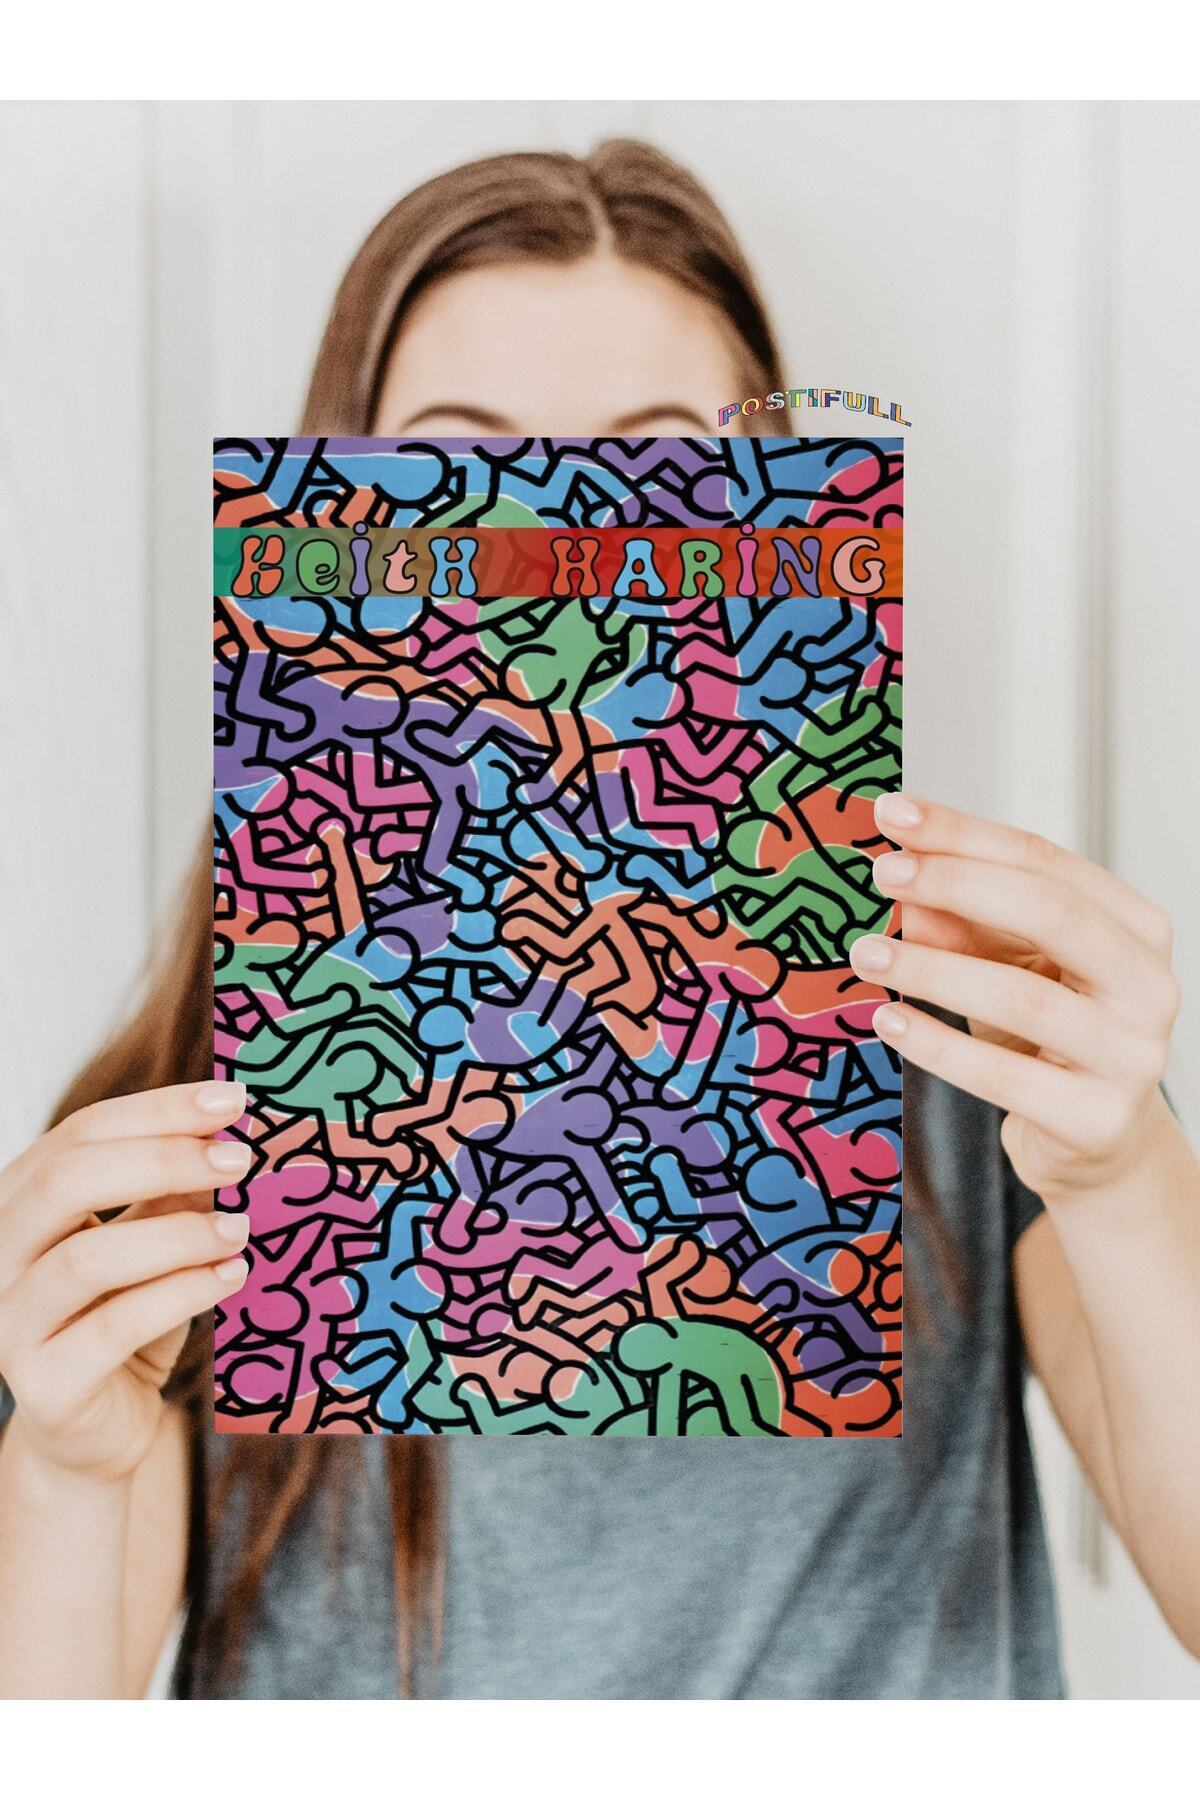 POSTIFULL
Keith HARiNG